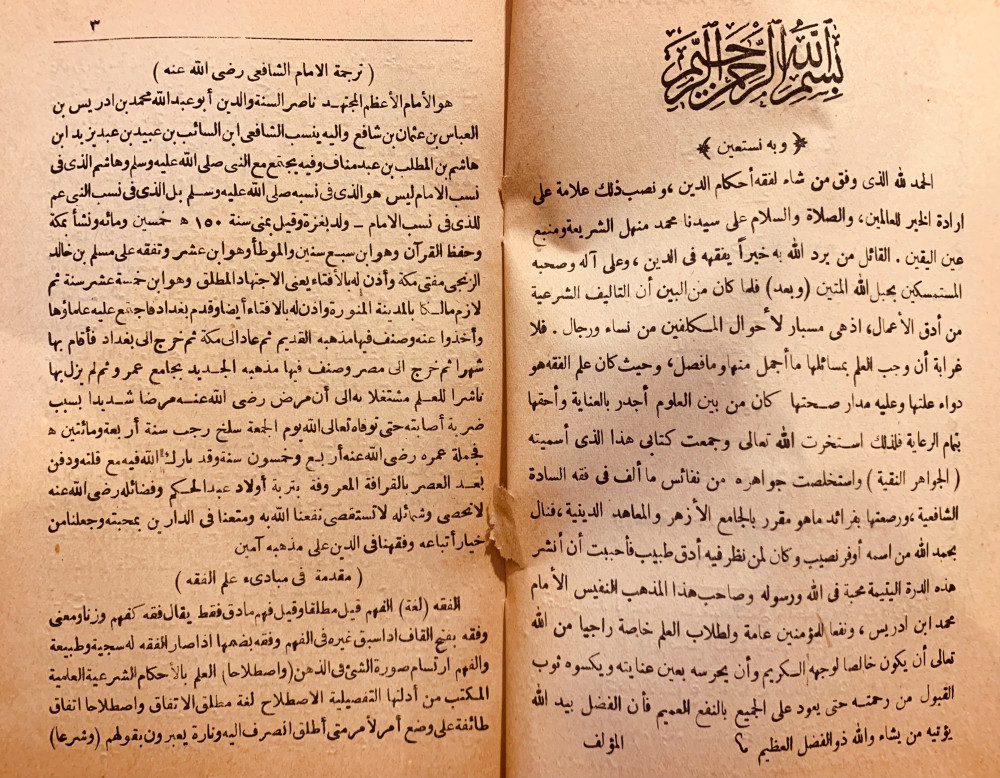 بسم الله الرحمن الرحيم
﴿ وبه نستعين ﴾
الحمد لله الذى وفق من شاء لفقه أحكام الدين ، ونصب ذلك علامة على
ارادة الخير للعالمين، والصلاة والسلام على سيدنا محمد منهل الشريعة ومنبع
عين اليقين . القائل من يرد الله به خيراً يفقهه فى الدين ، وعلى آله وصحبه
المستمسكين بحبل الله المتين (وبعد) فلما كان من البين أن التاليف الشرعية
من أدق الأعمال، اذهى مسبار لأحوال المكلفين من نساء ورجال . فلا
غرابة أن وجب العلم بمسائلها ما أجمل منها وما فصل، وحيث كان علم الفقه هو
دواء علتها وعليه مدار صحتها كان من بين العلوم أجدر بالعناية وأحقها
بتمام الرعاية فلذلك استخرت الله تعالى وجمعت كتابى هذا الذى أسميته
( الجواهر النقية ) واستخلصت جواهره من نفائس ما ألف فى فقه السادة
الشافعية ،ورصعتها بفرائد ماهو مقرر بالجامع الأزهر والمعاهد الدينية ،فنال
بحمد الله من اسمه أوفر نصيب وكان لمن نظر فيه أدق طبيب فأحببت أن أنشر
هذه الدرة اليتيمة محبة فى الله ورسوله وصاحب هذا المذهب النفيس الأمام
محمد ابن أدريس ، ونفعا للمؤمنين عامة ولطلاب العلم خاصة راجيا من الله
تعالى أن يكون خالصا لوجهه الكريم وأن يحرسه بعين عنايته ويكسوه ثوب
القبول من رحمته حتى يعود على الجميع بالنفع العميم فأن الفضل بيد الله
يؤتيه من يشاء والله ذو الفضل العظيم
المؤلف
٣
( ترجمة الامام الشافعى رضى الله عنه )
هو الأمام الأعظم المجتهد ناصر السنة والدين أبو عبد الله محمد بن ادريس بن
العباس بن عثمان بن شافع واليه ينسب الشافعى ابن السائب بن عبيد بن عبد يزيد ابن
هاشم بن المطلب بن عبد مناف وفيه يجتمع مع النبى صلى الله عليه وسلم وهاشم الذى فى
نسب الامام ليس هو الذى فى نسبه صلى الله عليه وسلم بل الذى فى نسب النبى عم
للذى فى نسب الامام – ولد بغزة وقيل بمنى سنة ١٥٠ ه خمسين ومائه ونشأ بمكة
وحفظ القرآن وهو ابن سبع سنين والموطأ وهو ابن عشر وتفقه على مسلم بن خالد
الزنجى مفتى مكة وأذن له بالأفتاء يعنى الاجتهاد المطلق وهو ابن خمسة عشر سنة ثم
لازم مالكا بالمدينة المنورة واذن له بالافتاء أيضا وقدم بغداد فاجتمع عليه علماؤها
وأخذوا عنه وصنف فيها مذهبه القديم ثم عاد الى مكة ثم خرج الى بغداد فأقام بها
شهرا ثم خرج الى مصر وصنف فيها مذهبه الجديد بجامع عمرو ثم لم يزل بها
ناشرا للعلم مشتغلا به الى أن مرض رضى الله عنه مرضا شديدا بسبب
ضربة أصابته حتى توفاه تعالى الله يوم الجمعة سلخ رجب سنة أربعة ومائتين ه
فجملة عمره رضى الله عنه أربع وخمسون سنة وقد بارك الله فيه مع قلته ودفن
بعد العصر بالقرافة المعروفة بتربة أولاد عبد الحكيم وفضائله رضى الله عنه
لاتحصى وشمائله لاتستقصى نفعنا الله به ومتعنا فى الدارين بمحبته وجعلنا من
خيار أتباعه وفقهنا فى الدين على مذهبه آمين
( مقدمة فى مبادىء علم الفقه )
الفقه (لغة) الفهم قيل مطلقا وقيل فهم مادق فقط يقال فقه كفهم وزنا ومعنى
وفقه بفتح القاف اذا سبق غيره فى الفهم وفقه بضمها اذا صار الفقه له سجية وطبيعة
والفهم ارتسام صورة الشئ فى الذهن (واصطلاحا) العلم بالأحكام الشرعية العلمية
المكتب من أدلتها التفصيلية الاصطلاح لغة مطلق الاتفاق واصطلاحا اتفاق
طائفة على وضع أمر لأمر متى أطلق انصرف اليه وتارة يعبرون بقولهم (وشرعا)